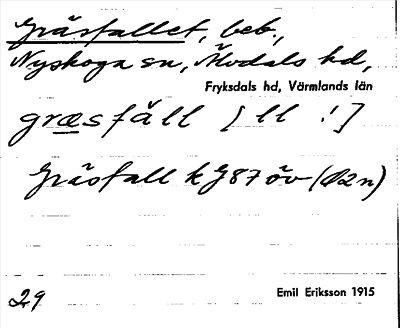 Gräsfallet, beb.,
Nyskoga sn, Älvdals hd,
Fryksdals hd, Värmlands län
græsfäll [ll !]
Gräsfall k G87 öv (Ö2n)
29
Emil Eriksson 1915